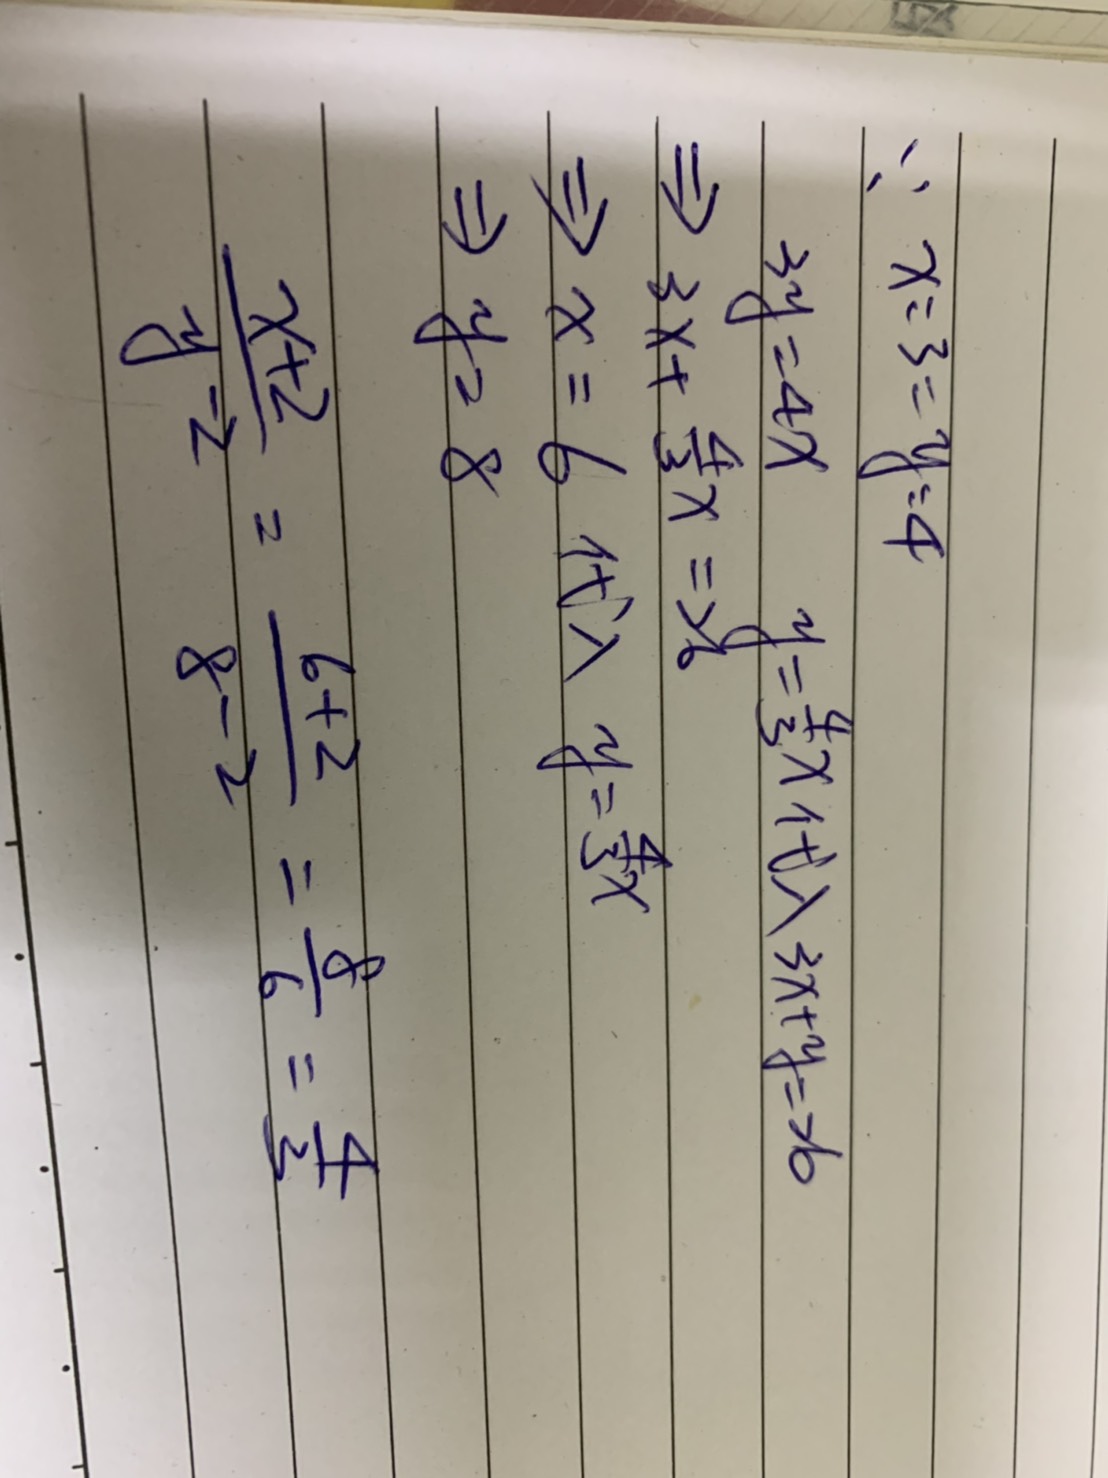 ∵ x=3=y=4
3y=4x y=4/3x 代入 3x+y=26
⇒ 3x+4/3x=26
⇒ x=6 代入 y=4/3x
⇒ y=8
(x+2)/(y-2) = (6+2)/(8-2) = 8/6 = 4/3